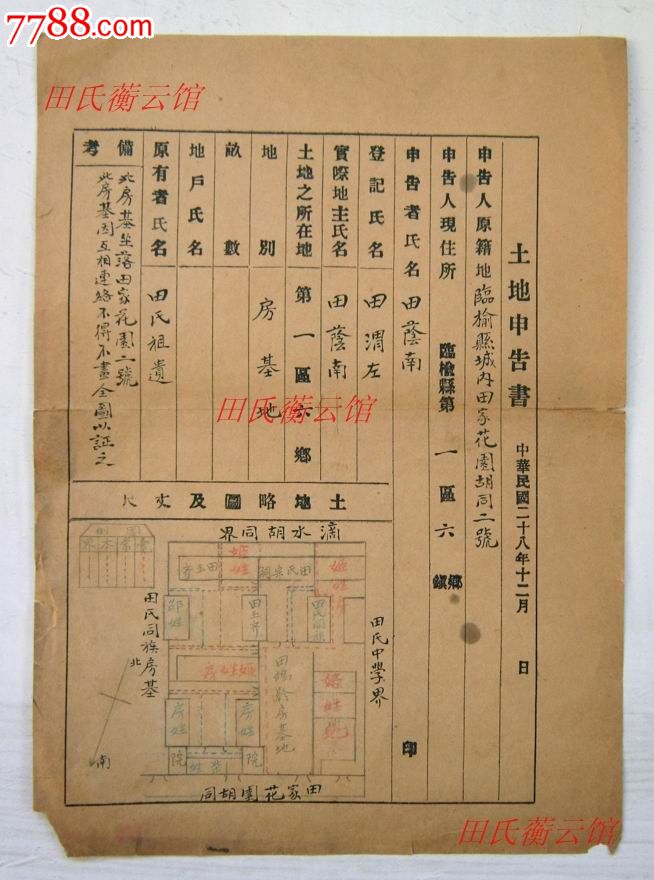 7788.com
田氏蘅云馆
土地申告書 中華民國二十八年十二月 日
申告人原籍地 臨榆縣城內田家花園胡同二號
申告人現住所 臨楡縣第一區六鄉鎭
申告者氏名 田蔭南 印
登記氏名 田渭左
實際地主氏名 田蔭南
土地之所在地 第一區六鄉
地別 房基地
畝數
地戶氏名
原有者氏名 田氏祖遺
備考 此房基坐落田家花園二號
此房基因互相連絡不得不畫全圖以証之
土地略圖及丈尺
滴水胡同界
田氏中學界
田氏同族房基
田家花園胡同
北
南
田氏宗祠
姬姓
姬姓房
邵姓
田玉齊
房姓
房姓
院
院
田氏蘅云馆
田氏蘅云馆